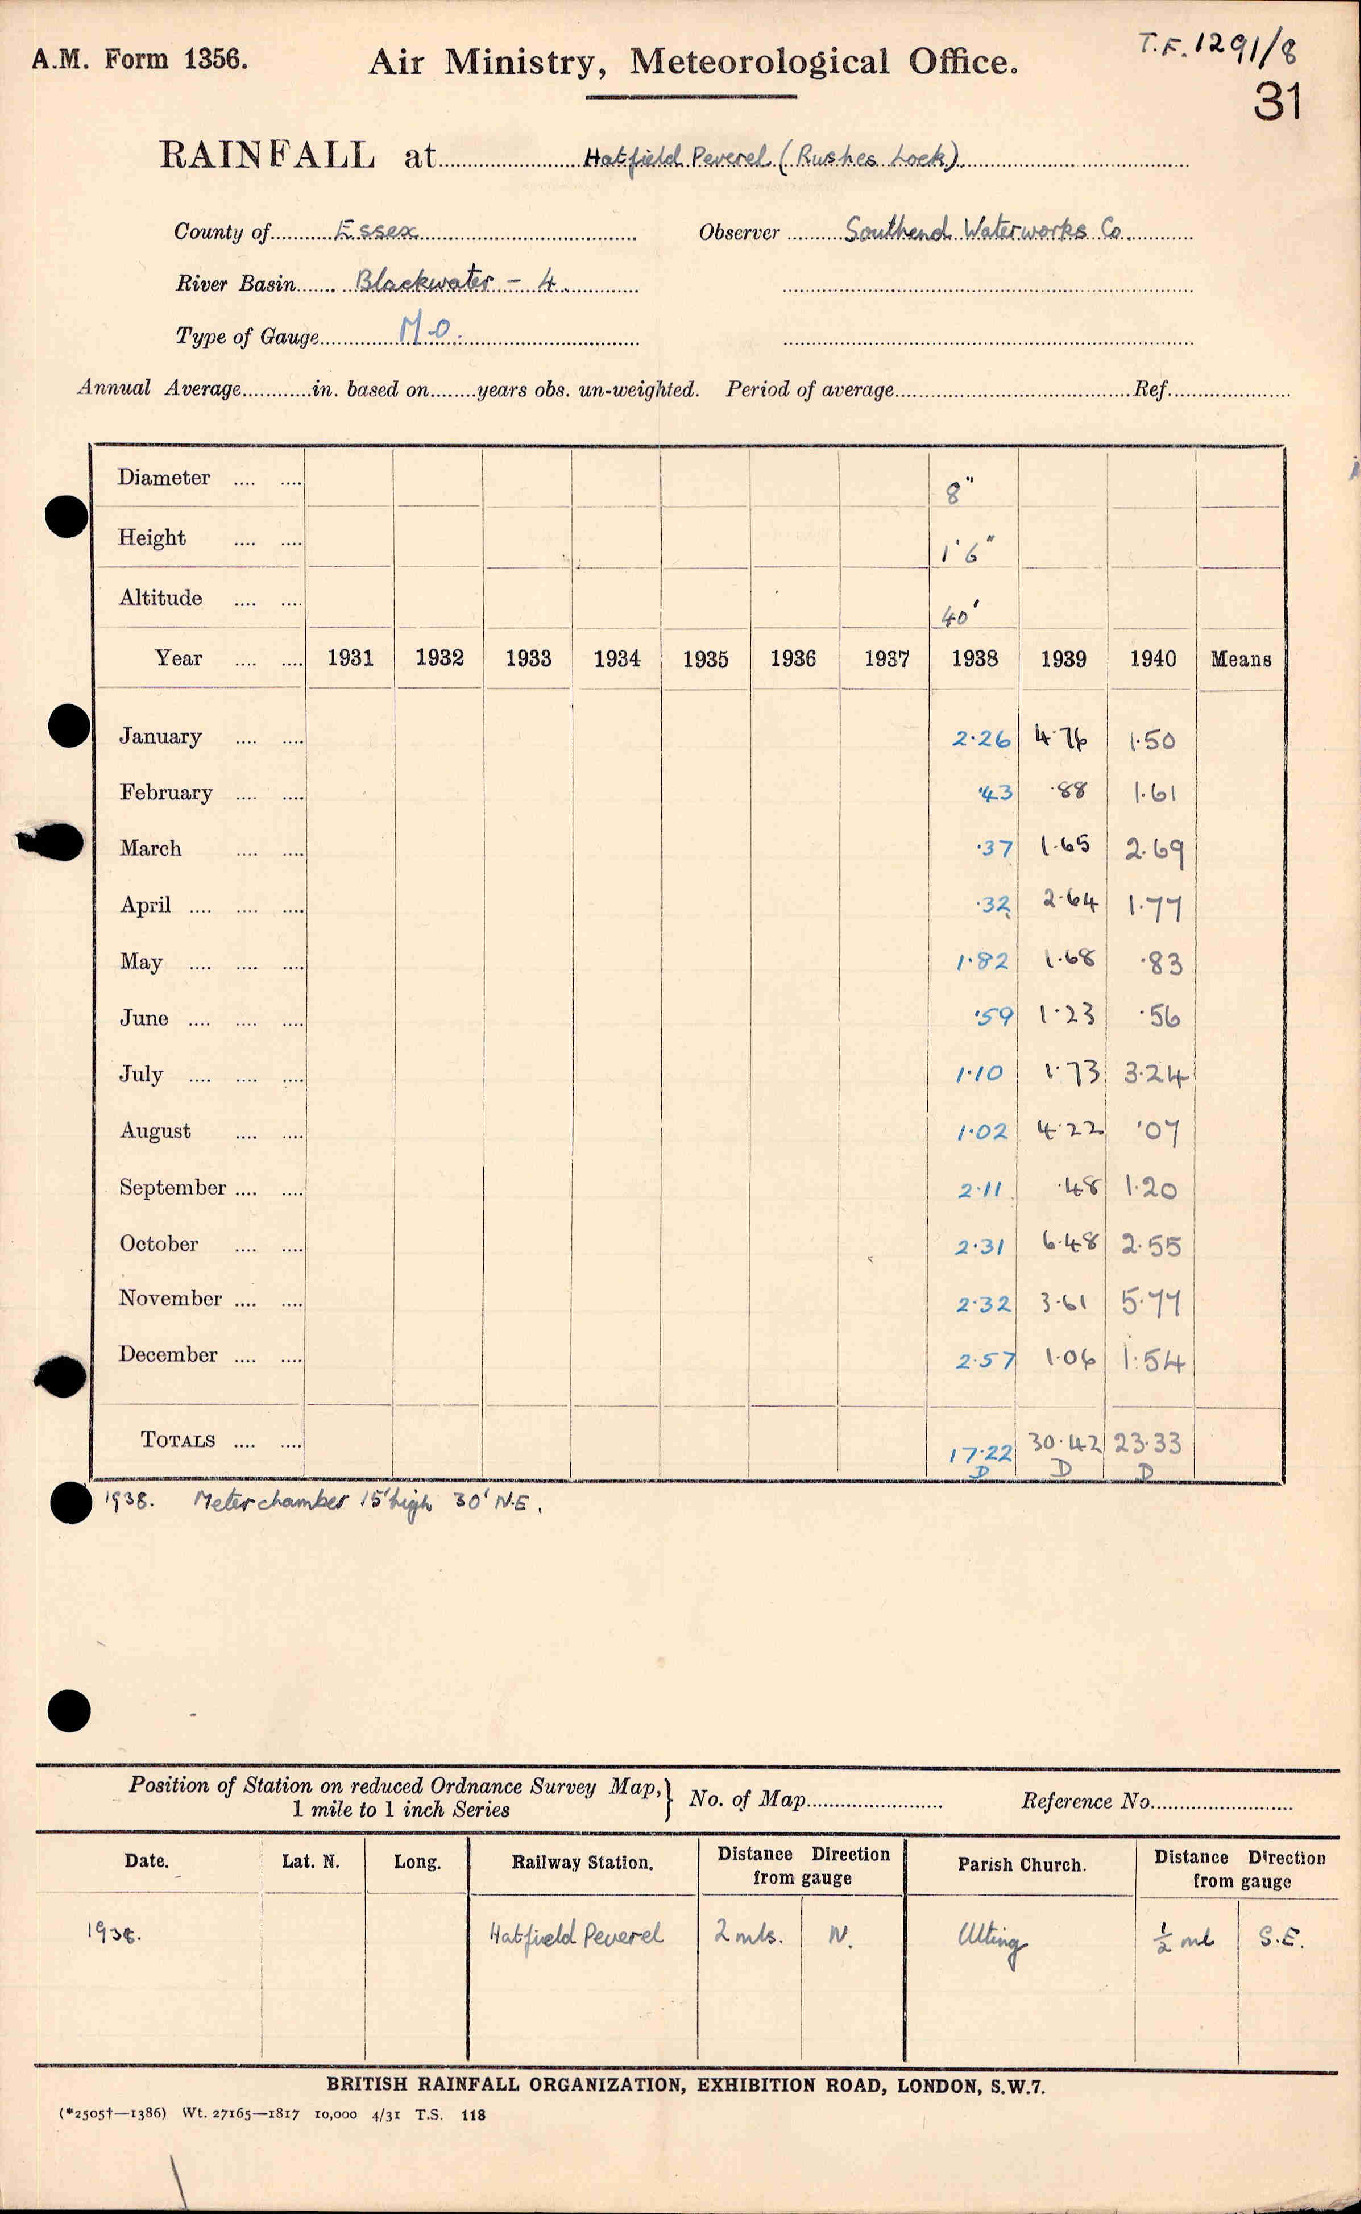 A.M. Form 1356.
Air Ministry, Meteorological Office.
T.F. 1291/8
31
RAINFALL at Hatfield Peverel (Rushes Lock)
County of Essex Observer Southend Waterworks Co.
River Basin Blackwater - 4.
Type of Gauge M.O.
Annual Average............in. based on........years obs. un-weighted. Period of average............Ref............
Diameter .... .... 8"
Height .... .... 1'6"
Altitude .... .... 40'
Year .... .... 1931 1932 1933 1934 1935 1936 1937 1938 1939 1940 Means
January .... .... 2.26 4.76 1.50
February .... .... .43 .88 1.61
March .... .... .37 1.65 2.69
April .... .... .... .32 2.64 1.77
May .... .... .... 1.82 1.68 .83
June .... .... .... .59 1.23 .56
July .... .... .... 1.10 1.73 3.24
August .... .... 1.02 4.22 .07
September .... .... 2.11 .48 1.20
October .... .... 2.31 6.48 2.55
November .... .... 2.32 3.61 5.77
December .... .... 2.57 1.06 1.54
TOTALS .... .... 17.22 30.42 23.33
D D D
1938. Meter chamber 15' high 30' N.E.
Position of Station on reduced Ordnance Survey Map, } No. of Map............ Reference No............
1 mile to 1 inch Series
Date. Lat. N. Long. Railway Station. Distance Direction from gauge Parish Church. Distance Direction from gauge
1938. Hatfield Peverel 2 mls. N. Ulting ½ ml S.E.
BRITISH RAINFALL ORGANIZATION, EXHIBITION ROAD, LONDON, S.W.7.
(*2505†—1386) Wt. 27165—1817 10,000 4/31 T.S. 118